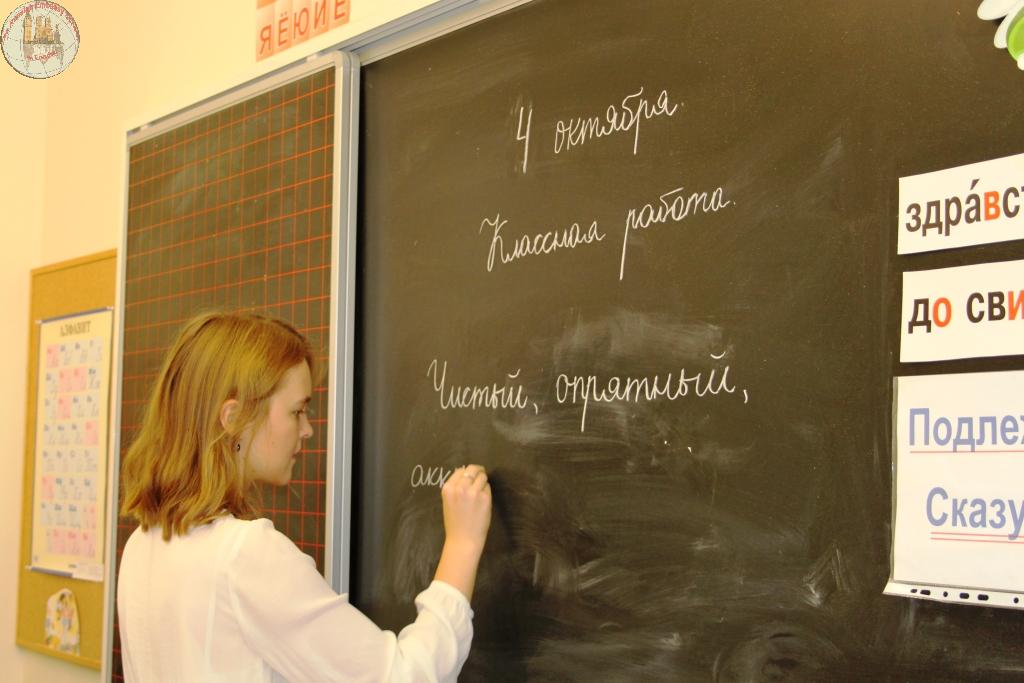 ЯЁЮИЕ
4 октября.
Классная работа.
Чистый, опрятный,
акк
здра́вст
до сви
Подлеж
Сказу
АЛФАВИТ